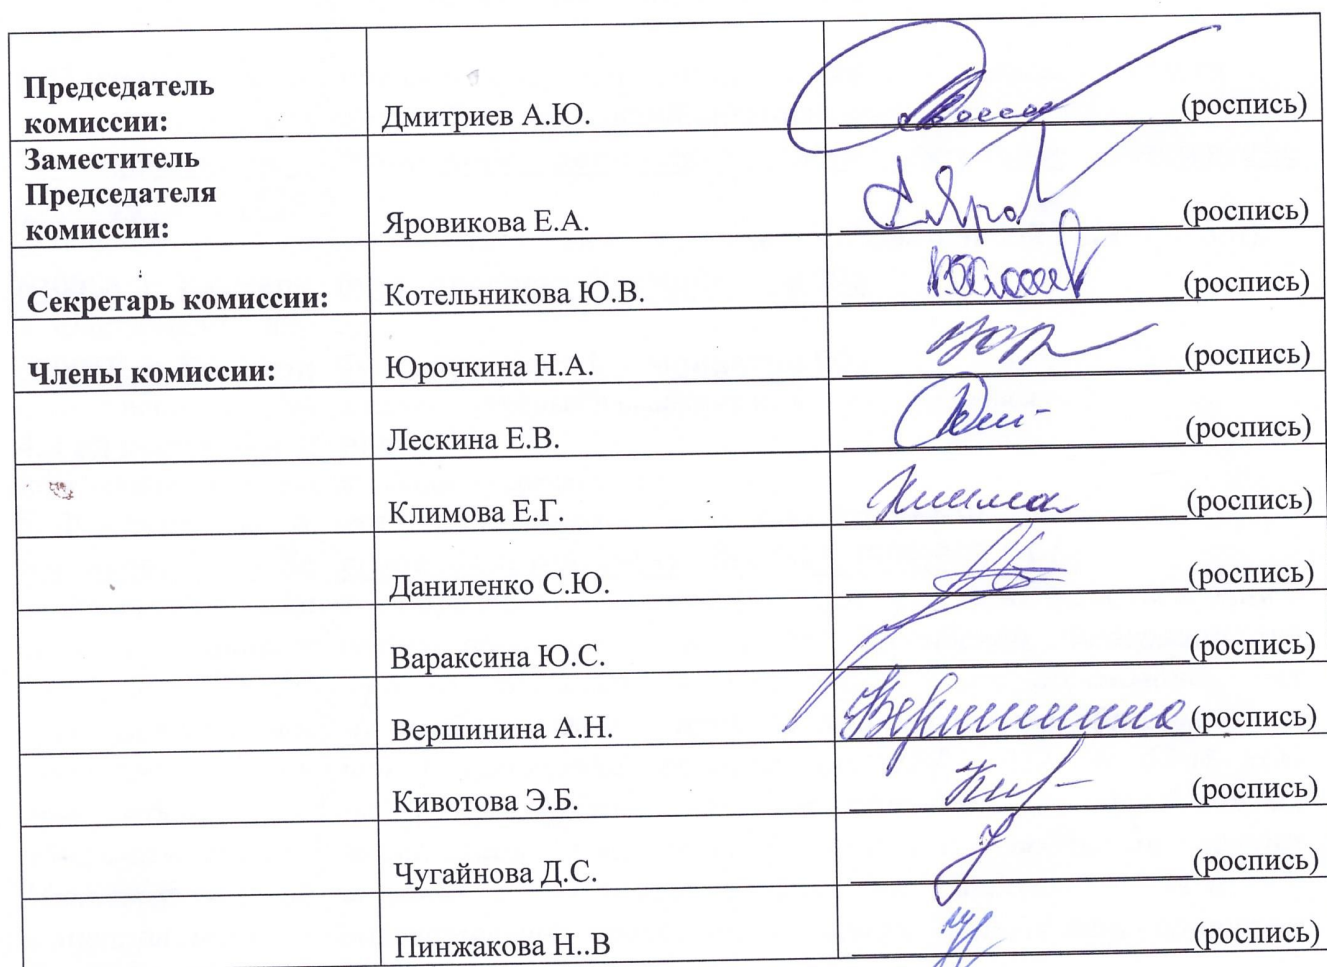 Председатель
комиссии: Дмитриев А.Ю. (роспись)
Заместитель
Председателя
комиссии: Яровикова Е.А. (роспись)
Секретарь комиссии: Котельникова Ю.В. (роспись)
Члены комиссии: Юрочкина Н.А. (роспись)
Лескина Е.В. (роспись)
Климова Е.Г. (роспись)
Даниленко С.Ю. (роспись)
Вараксина Ю.С. (роспись)
Вершинина А.Н. Вершинина (роспись)
Кивотова Э.Б. (роспись)
Чугайнова Д.С. (роспись)
Пинжакова Н..В (роспись)